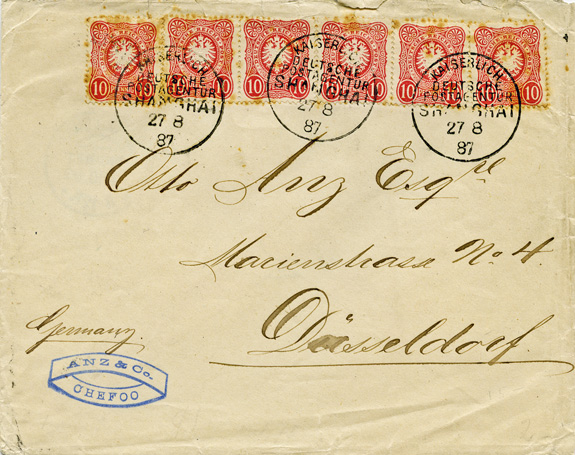 10 10 10 10 10 10 10
KAISERLICH
DEUTSCHE
POSTAGENTUR
SHANGHAI
27 8
87
KAISERLICH
DEUTSCHE
POSTAGENTUR
SHANGHAI
27 8
87
KAISERLICH
DEUTSCHE
POSTAGENTUR
SHANGHAI
27 8
87
Otto Anz Esqre
Marienstrasse No 4.
Düsseldorf.
Germany
ANZ & Co.
CHEFOO